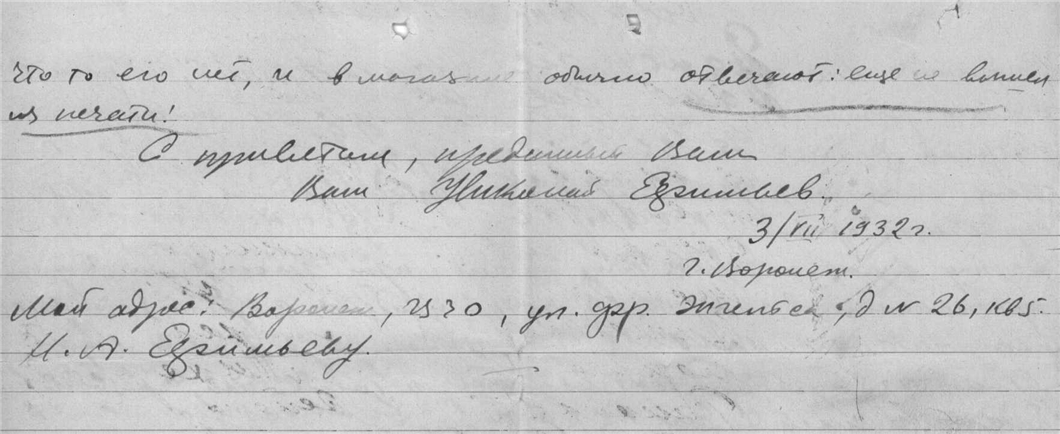 что то его нет, и в магазине обычно отвечают: еще не вышел
из печати!
С приветом, преданный Вам
Ваш Николай
3/VII 1932 г.
г. Воронеж.
Мой адрес: Воронеж, ЦЧО, ул. фр. Энгельса, д N 26, кв 5.
Н. А.